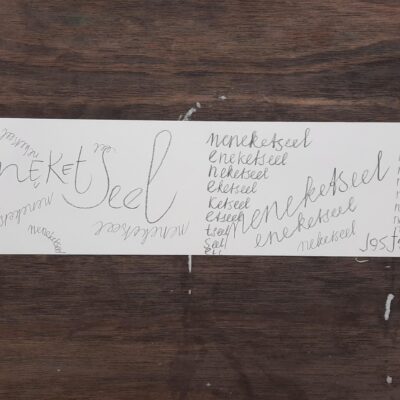 neketseel
neneketseel
neneketseel
neneketseel
eneketseel
neketseel
eketseel
ketseel
etseel
tseel
seel
eel
neneketseel
eneketseel
neketseel